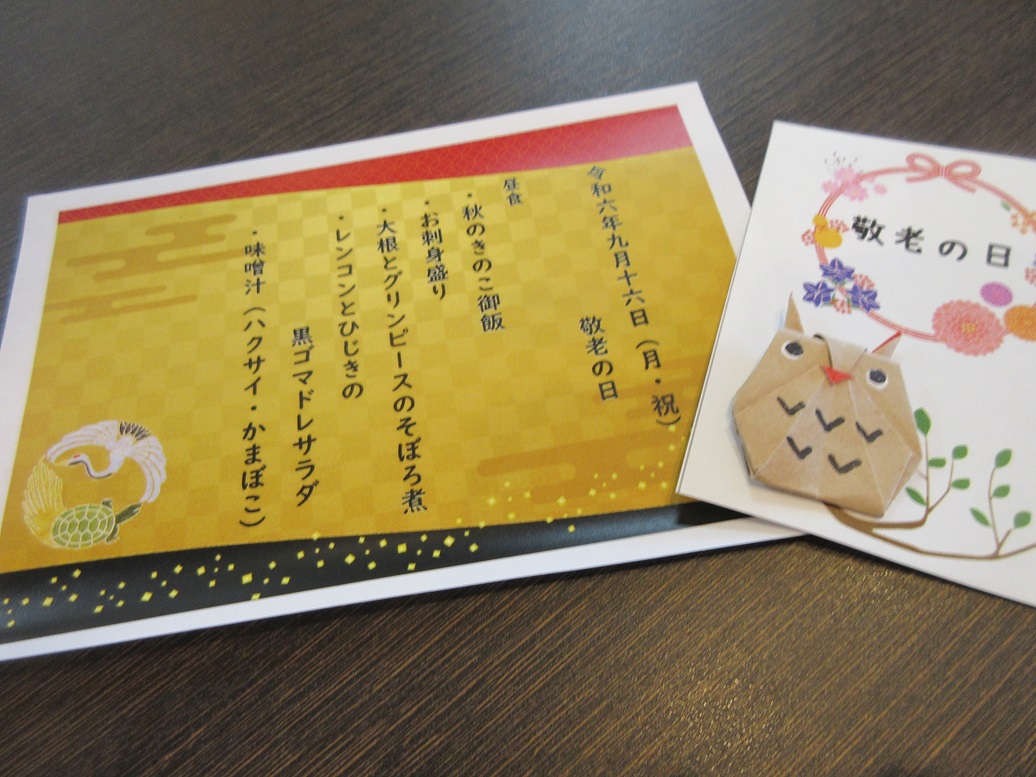 令和六年九月十六日（月・祝）
敬老の日
昼食
・秋のきのこ御飯
・お刺身盛り
・大根とグリンピースのそぼろ煮
・レンコンとひじきの
黒ゴマドレサラダ
・味噌汁（ハクサイ・かまぼこ）
敬老の日